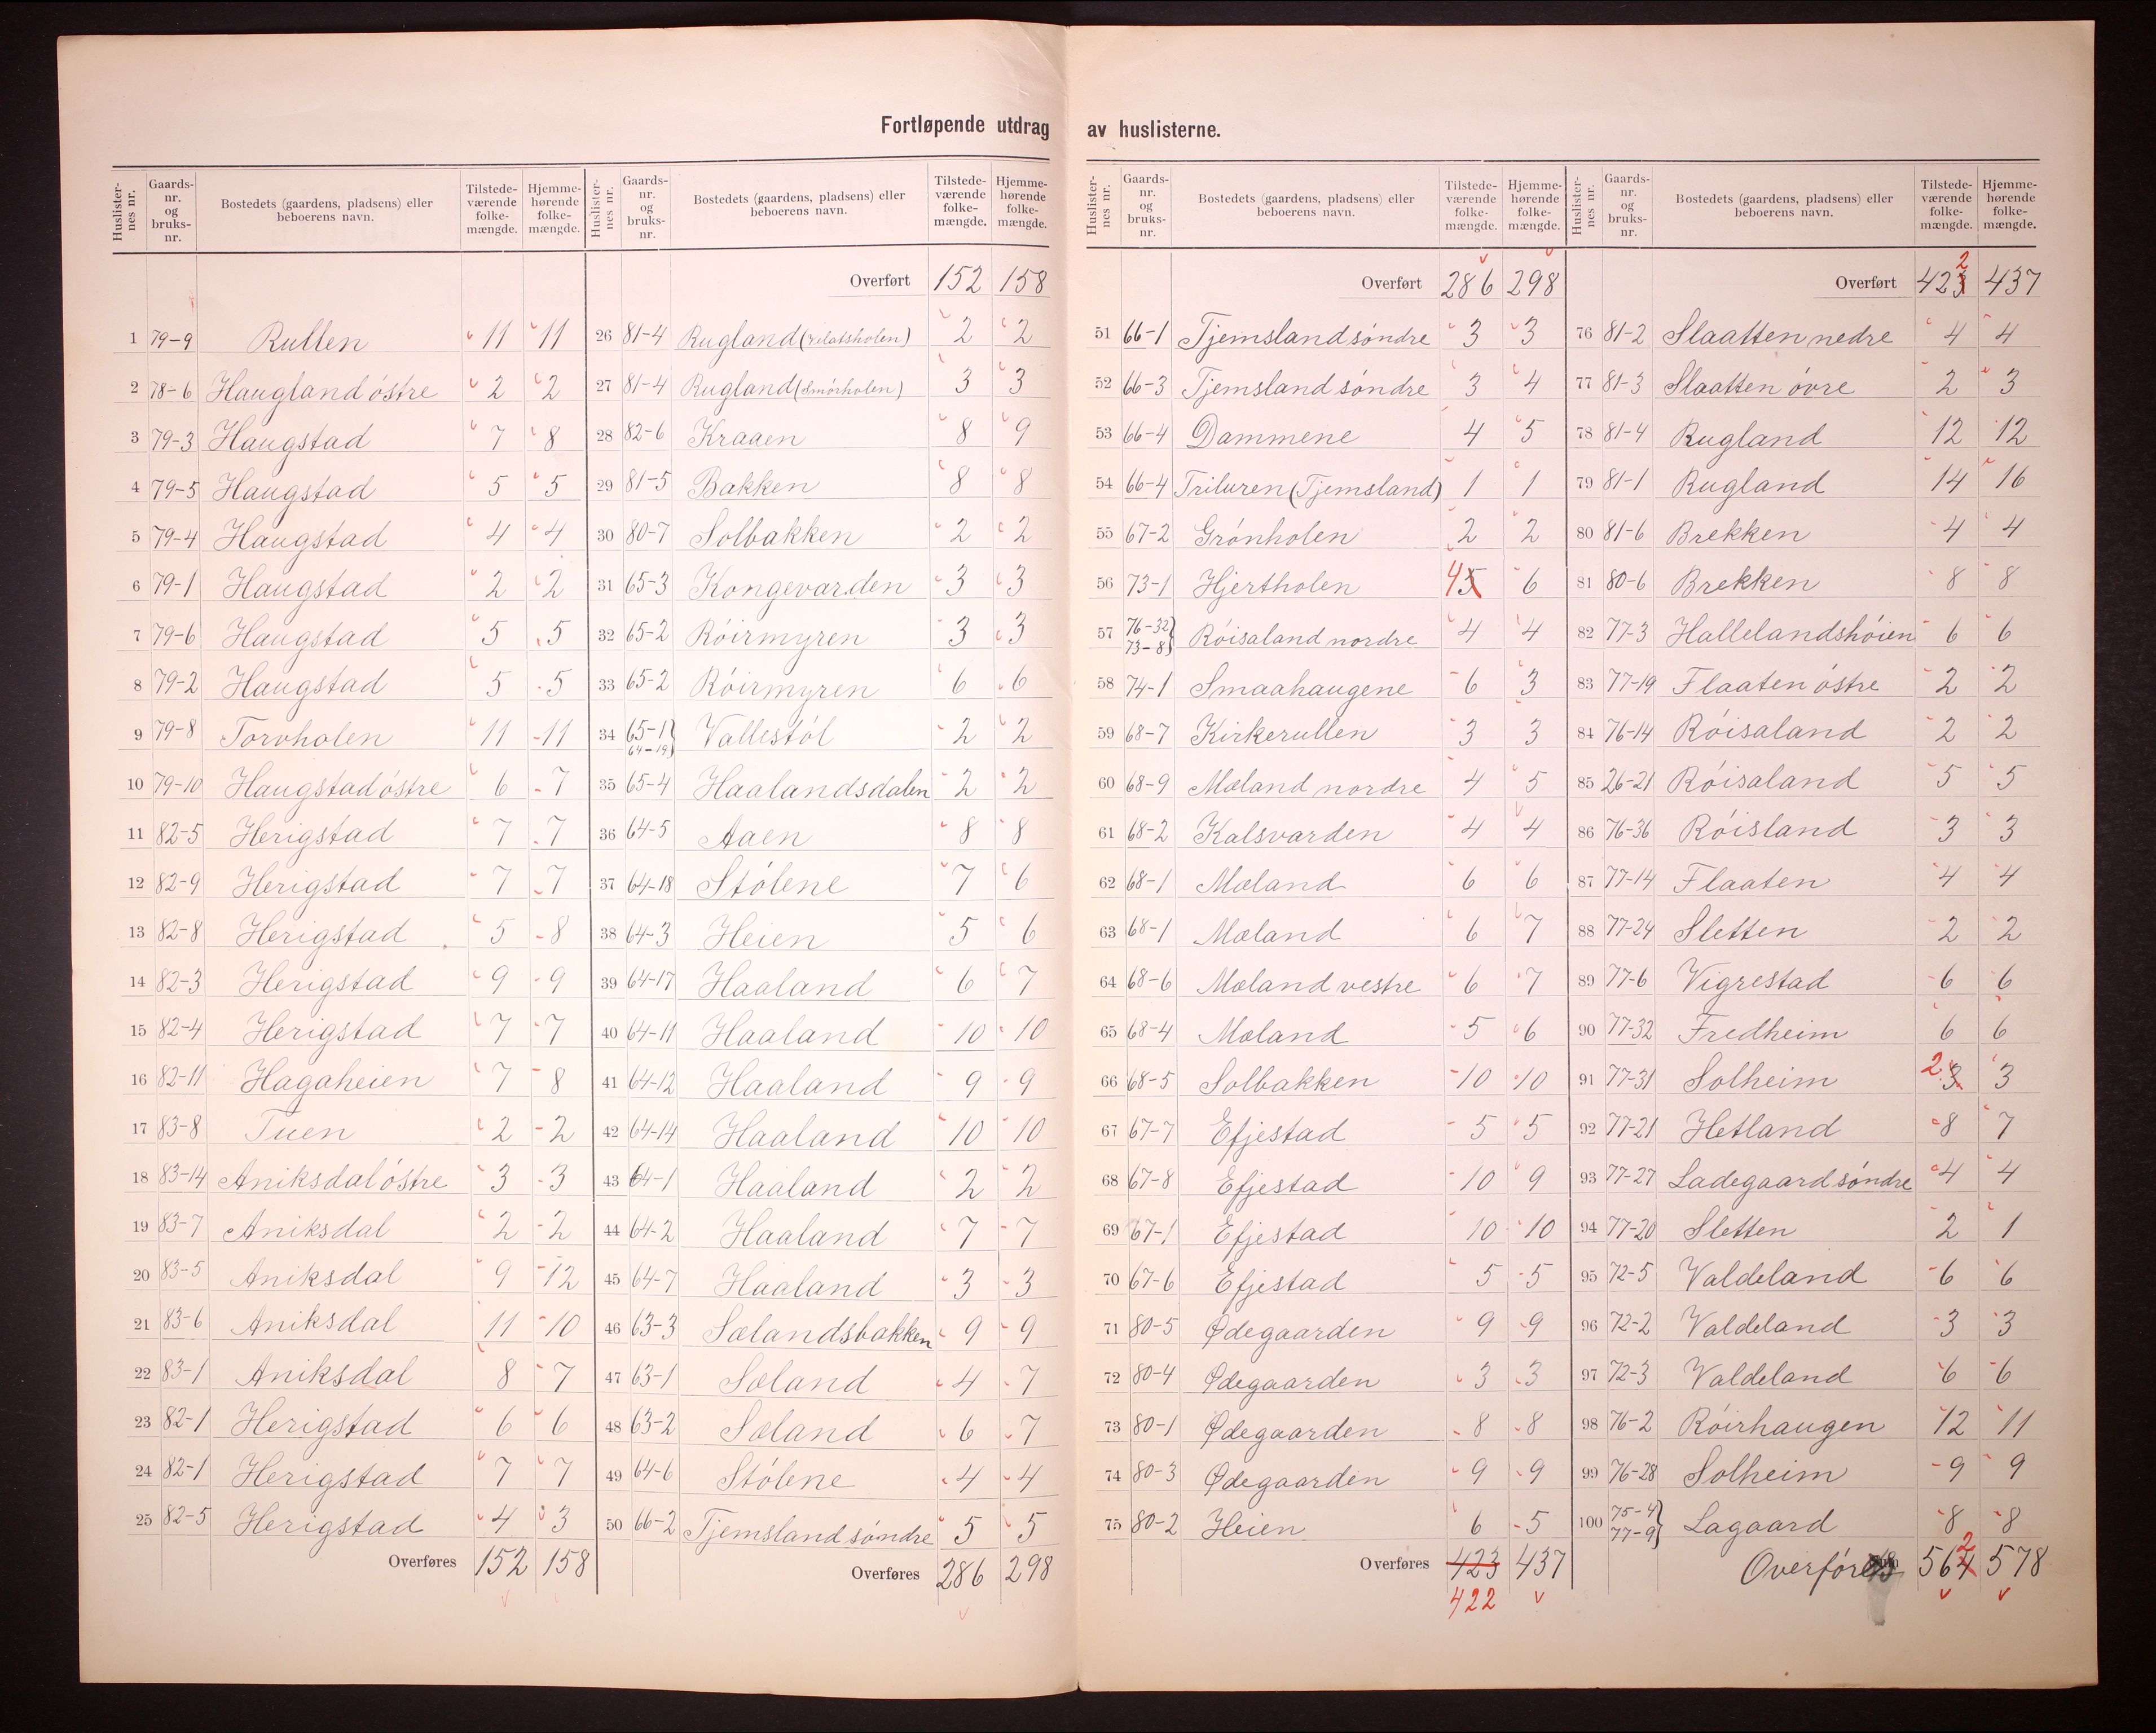 Fortløpende utdrag av huslisterne.
Huslisternes nr. Gaards-nr. og bruks-nr. Bostedets (gaardens, pladsens) eller beboerens navn. Tilstedeværende folkemængde. Hjemmehørende folkemængde.
1 79-9 Rullen 11 11
2 78-6 Haugland östre 2 2
3 79-3 Haugstad 7 8
4 79-5 Haugstad 5 5
5 79-4 Haugstad 4 4
6 79-1 Haugstad 2 2
7 79-6 Haugstad 5 5
8 79-2 Haugstad 5 5
9 79-8 Torvholen 11 11
10 79-10 Haugstad östre 6 7
11 82-5 Herigstad 7 7
12 82-9 Herigstad 7 7
13 82-8 Herigstad 5 8
14 82-3 Herigstad 9 9
15 82-4 Herigstad 7 7
16 82-11 Hagaheien 7 8
17 83-8 Tuen 2 2
18 83-14 Aniksdal östre 3 3
19 83-7 Aniksdal 2 2
20 83-5 Aniksdal 9 12
21 83-6 Aniksdal 11 10
22 83-1 Aniksdal 8 7
23 82-1 Herigstad 6 6
24 82-1 Herigstad 7 7
25 82-5 Herigstad 4 3
Overføres 152 158
Huslisternes nr. Gaards-nr. og bruks-nr. Bostedets (gaardens, pladsens) eller beboerens navn. Tilstedeværende folkemængde. Hjemmehørende folkemængde.
Overført 152 158
26 81-4 Rugland 2 2
27 81-4 Rugland (Smörholen) 3 3
28 82-6 Kraaen 8 9
29 81-5 Bakken 8 8
30 80-7 Solbakken 2 2
31 65-3 Kongevarden 3 3
32 65-2 Röirmyren 3 3
33 65-2 Röirmyren 6 6
34 65-1 64-19 Vallestöl 2 2
35 65-4 Haalandsdalen 2 2
36 64-5 Aaen 8 8
37 64-18 Stölene 7 6
38 64-3 Heien 5 6
39 64-17 Haaland 6 7
40 64-11 Haaland 10 10
41 64-12 Haaland 9 9
42 64-14 Haaland 10 10
43 64-1 Haaland 2 2
44 64-2 Haaland 7 7
45 64-7 Haaland 3 3
46 63-3 Sælandsbakken 9 9
47 63-1 Sæland 4 7
48 63-2 Sæland 6 7
49 64-6 Stölene 4 4
50 66-2 Tjemsland söndre 5 5
Overføres 286 298
Huslisternes nr. Gaards-nr. og bruks-nr. Bostedets (gaardens, pladsens) eller beboerens navn. Tilstedeværende folkemængde. Hjemmehørende folkemængde.
Overført 286 298
51 66-1 Tjemsland söndre 3 3
52 66-3 Tjemsland söndre 3 4
53 66-4 Dammene 4 5
54 66-4 Triluren (Tjemsland) 1 1
55 67-2 Grönholen 2 2
56 73-1 Hjertholen 4 5 6
57 76-32 73-8 Röisaland nordre 4 4
58 74-1 Smaahaugene 6 3
59 68-7 Kirkerullen 3 3
60 68-9 Mæland nordre 4 5
61 68-2 Kalsvarden 4 4
62 68-1 Mæland 6 6
63 68-1 Mæland 6 7
64 68-6 Mæland vestre 6 7
65 68-4 Mæland 5 6
66 68-5 Solbakken 10 10
67 67-7 Efjestad 5 5
68 67-8 Efjestad 10 9
69 67-1 Efjestad 10 10
70 67-6 Efjestad 5 5
71 80-5 Ødegaarden 9 9
72 80-4 Ødegaarden 3 3
73 80-1 Ødegaarden 8 8
74 80-3 Ødegaarden 9 9
75 80-2 Heien 6 5
Overføres 423 437
422
Huslisternes nr. Gaards-nr. og bruks-nr. Bostedets (gaardens, pladsens) eller beboerens navn. Tilstedeværende folkemængde. Hjemmehørende folkemængde.
2
Overført 423 437
76 81-2 Slaatten nedre 4 4
77 81-3 Slaatten övre 2 3
78 81-4 Rugland 12 12
79 81-1 Rugland 14 16
80 81-6 Brekken 4 4
81 80-6 Brekken 8 8
82 77-3 Hallelandshöien 6 6
83 77-19 Flaaten östre 2 2
84 76-14 Röisaland 2 2
85 26-21 Röisaland 5 5
86 76-36 Röisland 3 3
87 77-14 Flaaten 4 4
88 77-24 Sletten 2 2
89 77-6 Vigrestad 6 6
90 77-32 Fredheim 6 6
91 77-31 Solheim 2 3 3
92 77-21 Hetland 8 7
93 77-27 Ladegaard söndre 4 4
94 77-20 Sletten 2 1
95 72-5 Valdeland 6 6
96 72-2 Valdeland 3 3
97 72-3 Valdeland 6 6
98 76-2 Röirhaugen 12 11
99 76-28 Solheim 9 9
100 75-4 77-9 Lagaard 8 8
2
Overföres 564 578